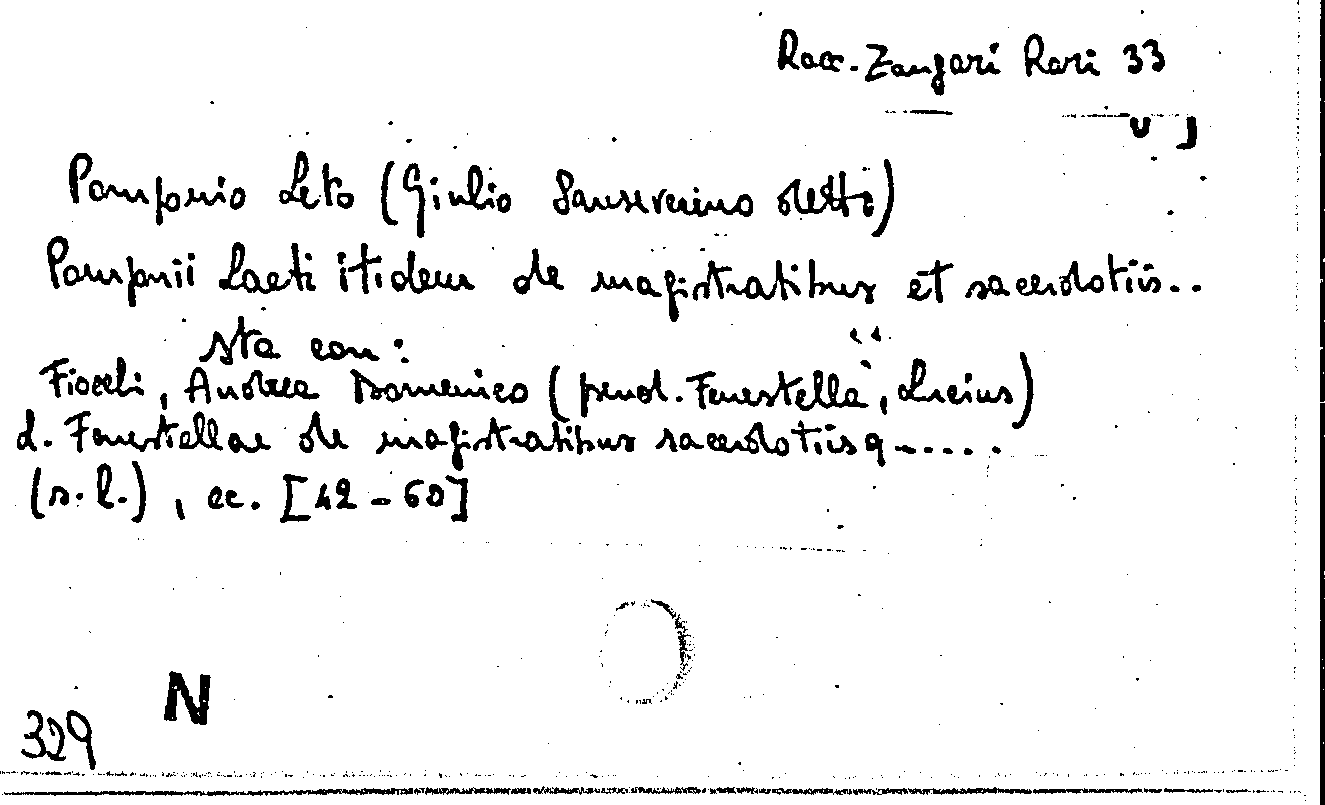 Racc. Zangari Rari 33
Pomponio Leto (Giulio Sanseverino detto)
Pomponii Laeti itidem de magistratibus et sacerdotiis..
sta con:
Fiocchi, Andrea Domenico (pseud. Fenestella, Lucius)
L. Fenestellae de magistratibus sacerdotiisq.....
(s.l.), cc. [42-60]
N
329